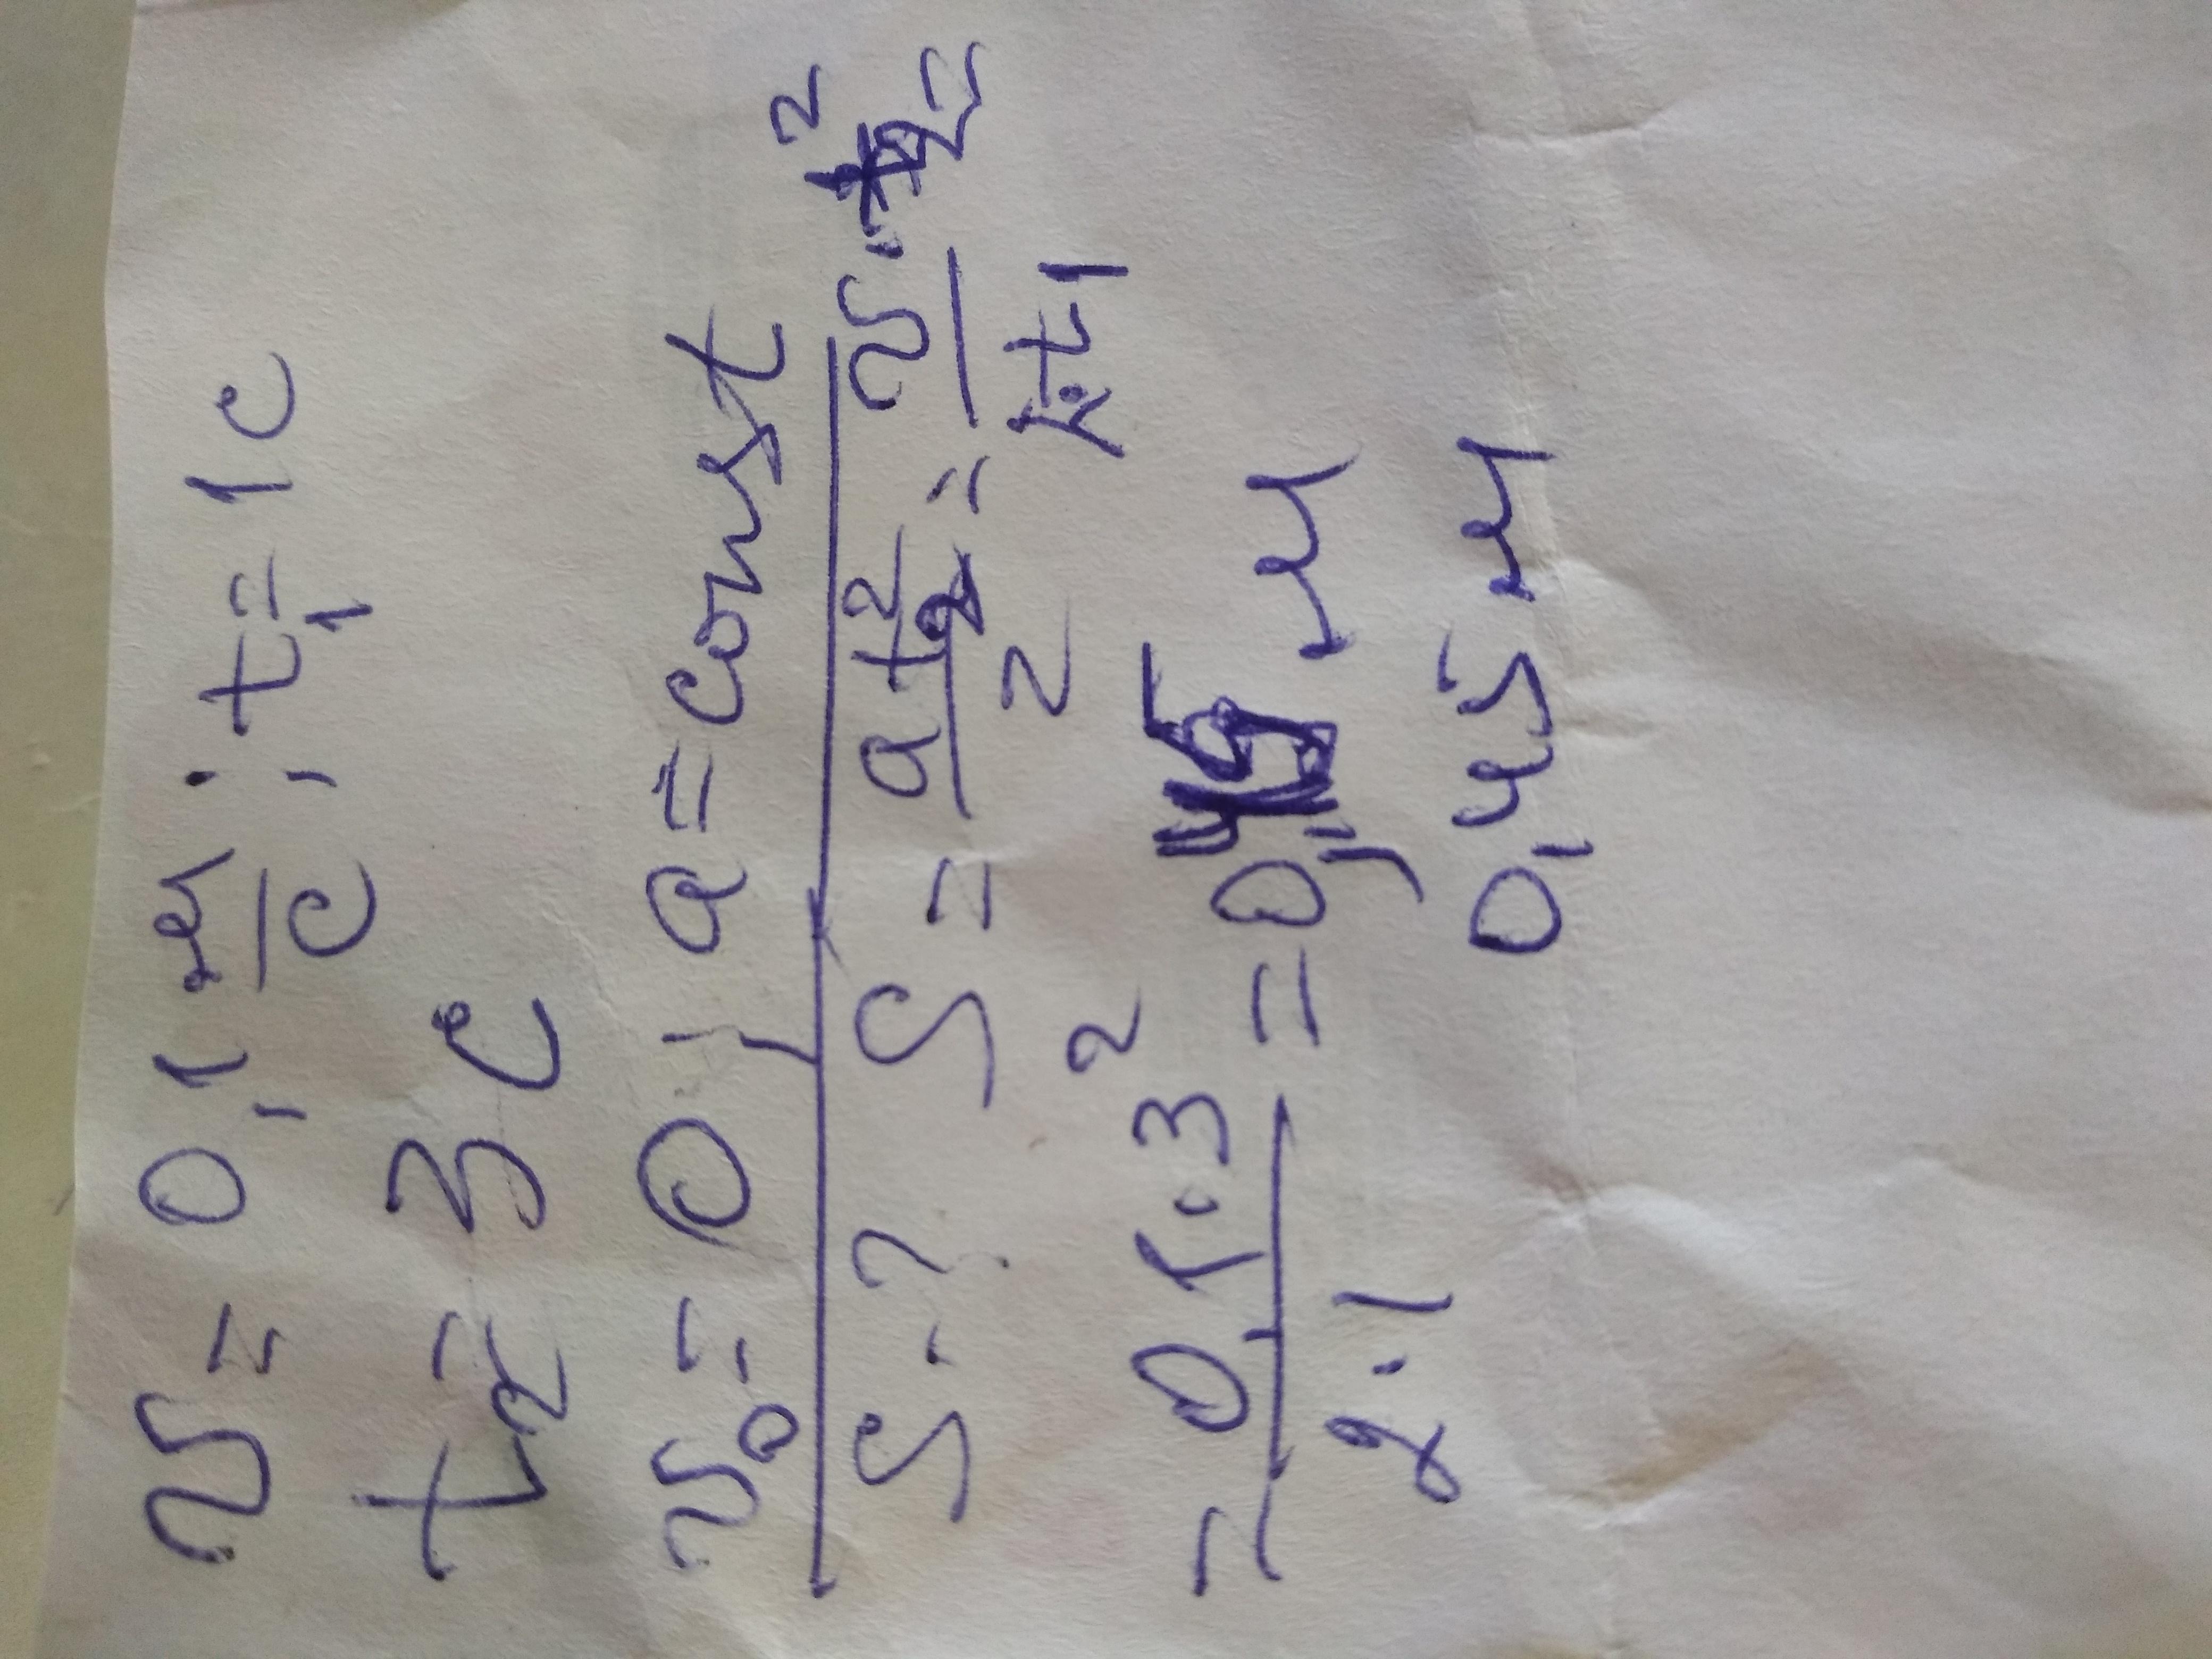 v = 0,1 м/с; t₁ = 1 с
t₂ = 3 с
v₀ = 0; a = const
S - ? S = at₂²/2 = v·t₂²/2·t₁ =
= 0,1·3²/2·1 = 0,45 м
0,45 м